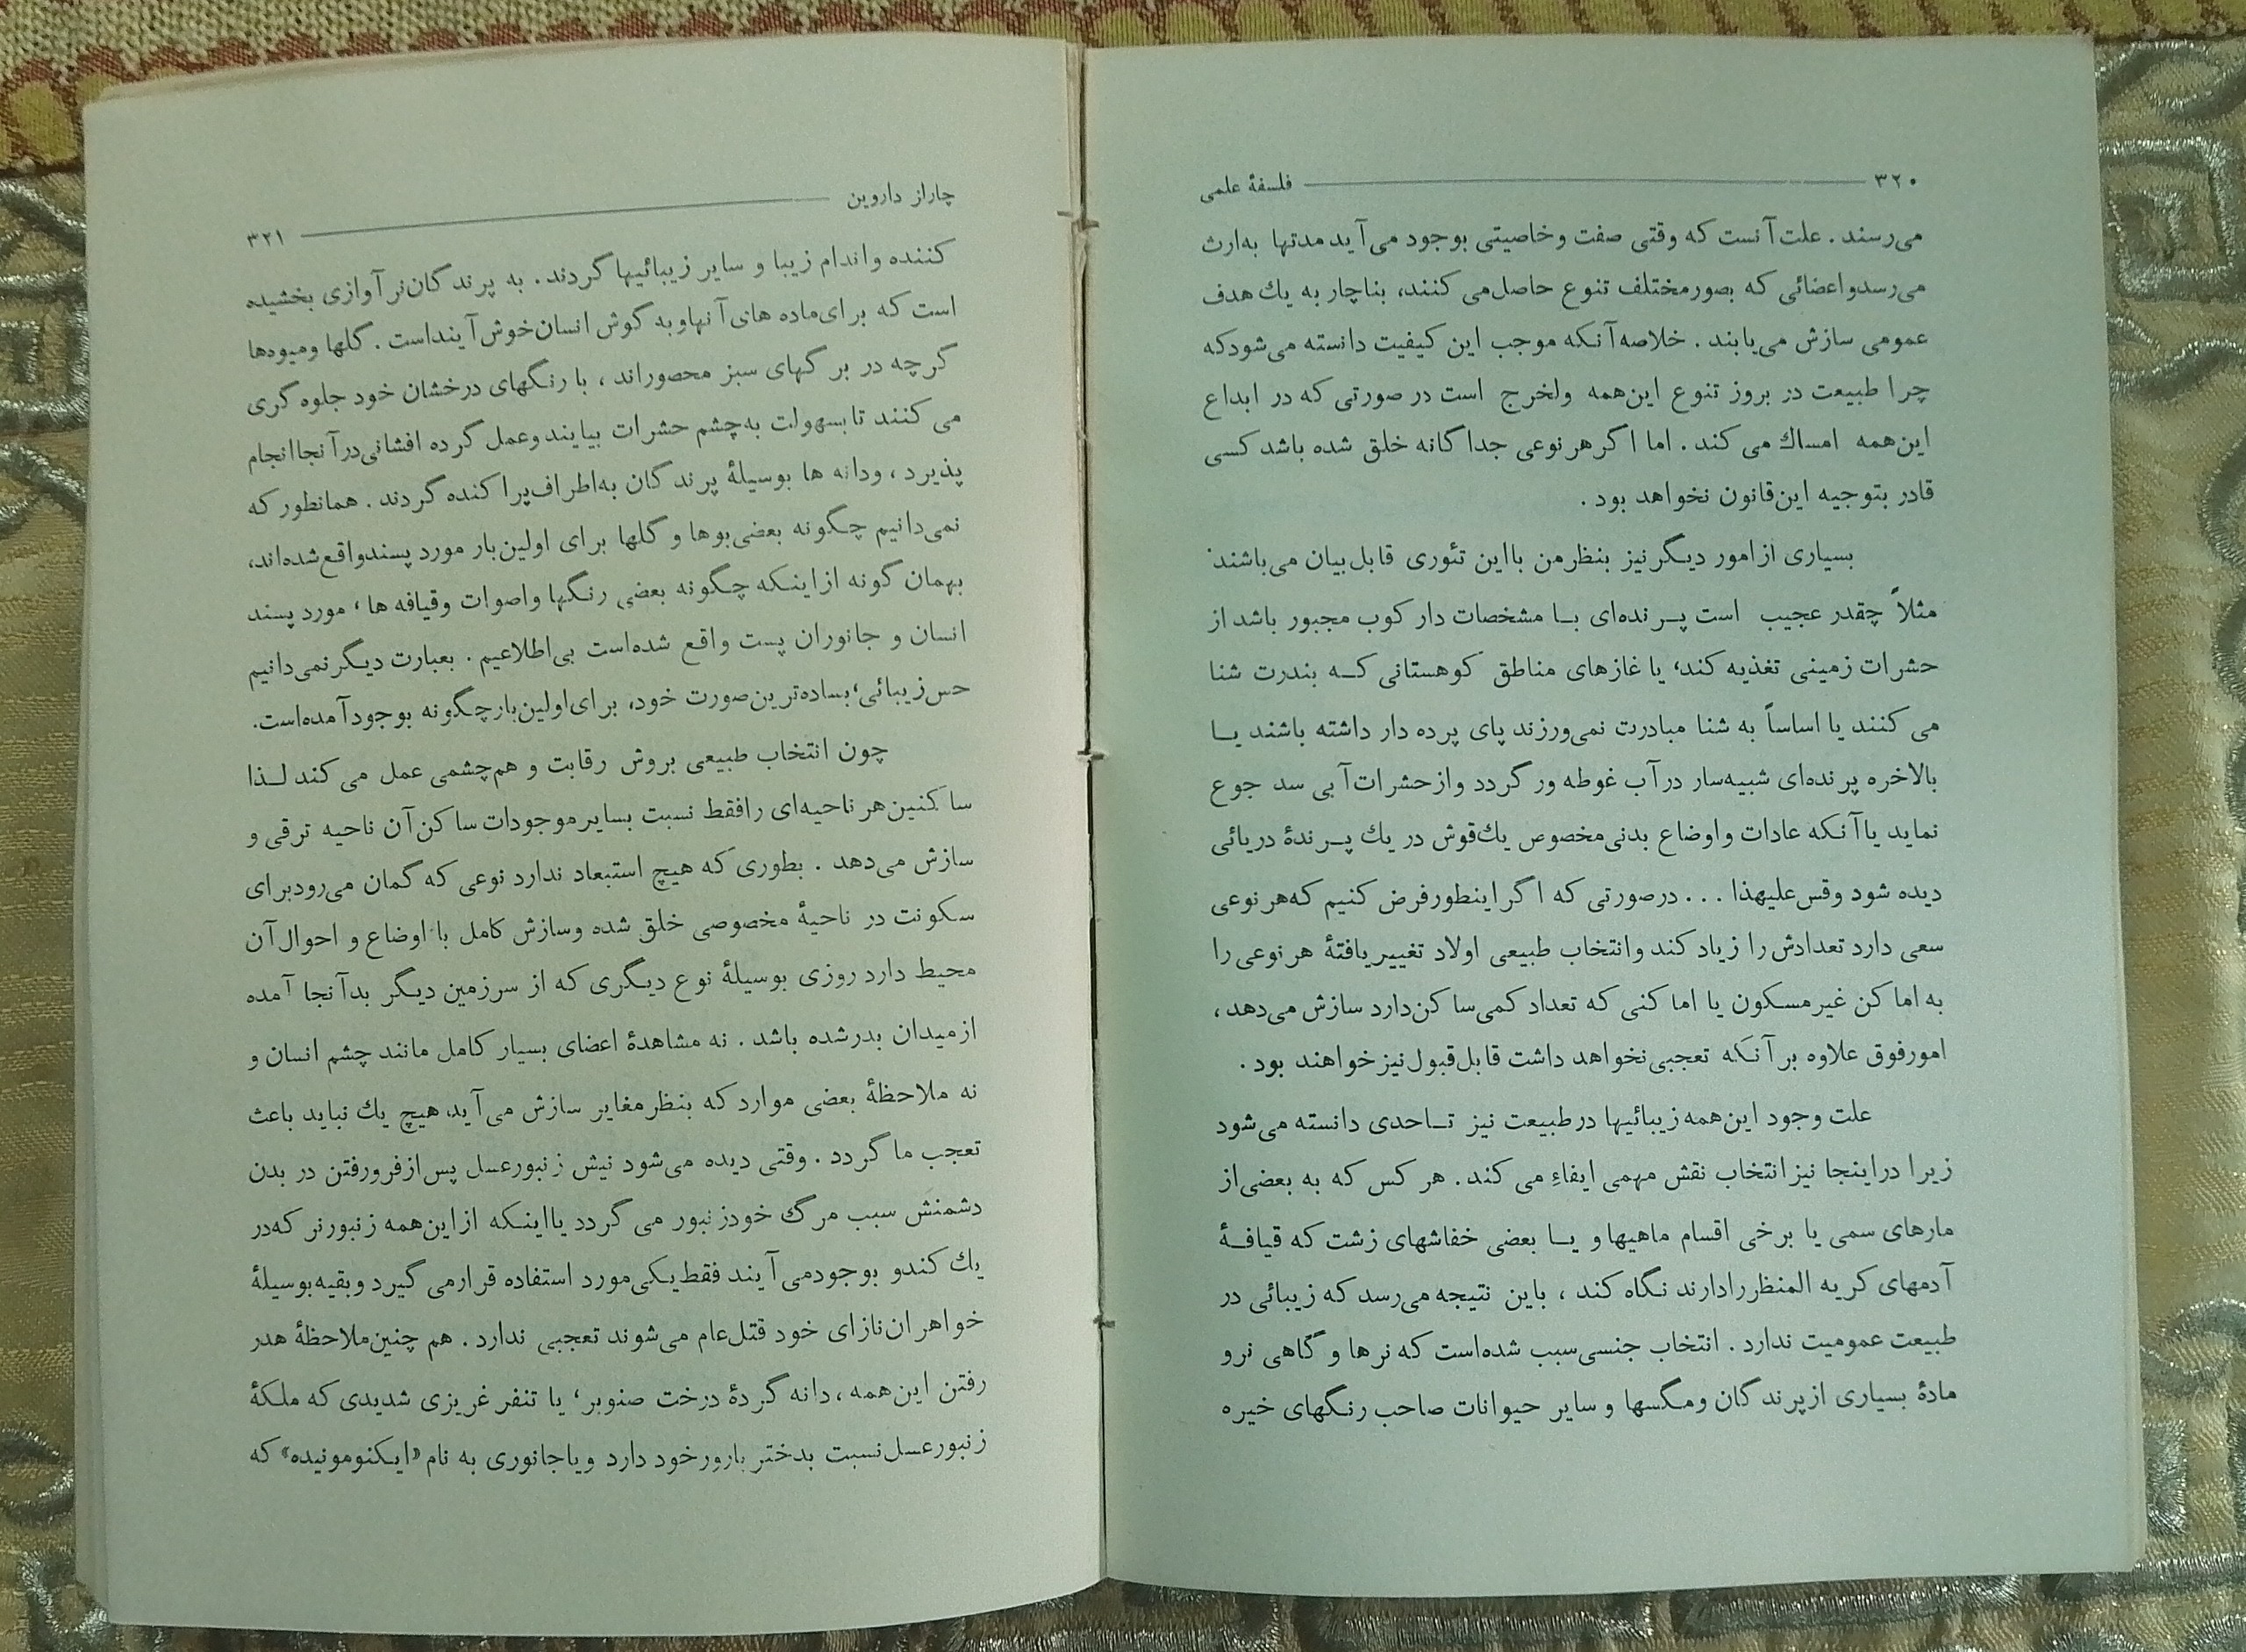 ۳۲۰ فلسفهٔ علمی
می‌رسند . علت‌آنست که وقتی صفت وخاصیتی بوجود می‌آید مدتها به‌ارث
می‌رسدواعضائی که بصورمختلف تنوع حاصل‌می کنند، بناچار به یك هدف
عمومی سازش می‌یابند . خلاصه‌آنکه موجب این کیفیت دانسته می‌شودکه
چرا طبیعت در بروز تنوع این‌همه ولخرج است در صورتی که در ابداع
این‌همه امساك می کند . اما اگر هر نوعی جداگانه خلق شده باشد کسی
قادر بتوجیه این‌قانون نخواهد بود .
بسیاری ازامور دیگر نیز بنظرمن بااین تئوری قابل‌بیان می‌باشند
مثلاً چقدر عجیب است پرنده‌ای با مشخصات دار کوب مجبور باشد از
حشرات زمینی تغذیه کند، یا غازهای مناطق کوهستانی که بندرت شنا
می کنند یا اساساً به شنا مبادرت نمی‌ورزند پای پرده دار داشته باشند یا
بالاخره پرنده‌ای شبیه‌سار درآب غوطه ور گردد وازحشرات‌آبی سد جوع
نماید یاآنکه عادات واوضاع بدنی‌مخصوص یك‌قوش در یك پرندهٔ دریائی
دیده شود وقس‌علیهذا ... درصورتی که اگر اینطورفرض کنیم که‌هر نوعی
سعی دارد تعدادش را زیاد کند وانتخاب طبیعی اولاد تغییریافتهٔ هر نوعی را
به اماکن غیرمسکون یا اماکنی که تعداد کمی‌ساکن‌دارد سازش می‌دهد ،
امورفوق علاوه برآنکه تعجبی‌نخواهد داشت قابل‌قبول‌نیزخواهند بود .
علت وجود این‌همه زیبائیها درطبیعت نیز تاحدی دانسته می‌شود
زیرا دراینجا نیز انتخاب نقش مهمی ایفاء می کند . هر کس که به بعضی‌از
مارهای سمی یا برخی اقسام ماهیها و یا بعضی خفاشهای زشت که قیافهٔ
آدمهای کریه المنظررادارند نگاه کند ، باین نتیجه می‌رسد که زیبائی در
طبیعت عمومیت ندارد . انتخاب جنسی‌سبب شده‌است که نرها و گاهی نرو
مادهٔ بسیاری ازپرندگان ومگسها و سایر حیوانات صاحب رنگهای خیره
چاراز داروین ۳۲۱
کننده واندام زیبا و سایر زیبائیها گردند . به پرندگان‌نر آوازی بخشیده
است که برای‌ماده های‌آنهاوبه گوش انسان‌خوش‌آینداست . گلها ومیوه‌ها
گرچه در برگهای سبز محصوراند ، با رنگهای درخشان خود جلوه گری
می کنند تابسهولت به‌چشم حشرات بیایند وعمل گرده افشانی‌درآنجا انجام
پذیرد ، ودانه ها بوسیلهٔ پرندگان به‌اطراف‌پراکنده گردند . همانطور که
نمی‌دانیم چگونه بعضی‌بوها و گلها برای اولین‌بار مورد پسندواقع‌شده‌اند،
بهمان گونه ازاینکه چگونه بعضی رنگها واصوات وقیافه ها ، مورد پسند
انسان و جانوران پست واقع شده‌است بی‌اطلاعیم . بعبارت دیگرنمی‌دانیم
حس‌زیبائی،بساده‌ترین‌صورت خود، برای‌اولین‌بارچگونه بوجودآمده‌است.
چون انتخاب طبیعی بروش رقابت و هم‌چشمی عمل می کند لذا
ساکنین‌هر ناحیه‌ای رافقط نسبت بسایرموجودات ساکن‌آن ناحیه ترقی و
سازش می‌دهد . بطوری که هیچ استبعاد ندارد نوعی که گمان می‌رودبرای
سکونت در ناحیهٔ مخصوصی خلق شده وسازش کامل با اوضاع و احوال‌آن
محیط دارد روزی بوسیلهٔ نوع دیگری که از سرزمین دیگر بدآنجا آمده
ازمیدان بدرشده باشد . نه مشاهدهٔ اعضای بسیار کامل مانند چشم انسان و
نه ملاحظهٔ بعضی موارد که بنظرمغایر سازش می‌آید، هیچ یك نباید باعث
تعجب ما گردد . وقتی دیده می‌شود نیش زنبورعسل پس‌ازفرورفتن در بدن
دشمنش سبب مرگ خودزنبور می گردد یااینکه ازاین‌همه زنبورنر که‌در
یك کندو بوجودمی‌آیند فقط‌یکی‌مورد استفاده قرارمی گیرد وبقیه‌بوسیلهٔ
خواهران‌نازای خود قتل‌عام می‌شوند تعجبی ندارد . هم چنین‌ملاحظهٔ هدر
رفتن این‌همه ، دانه گردهٔ درخت صنوبر، یا تنفر غریزی شدیدی که ملکهٔ
زنبورعسل‌نسبت بدختر بارورخود دارد ویاجانوری به نام «ایکنومونیده» که